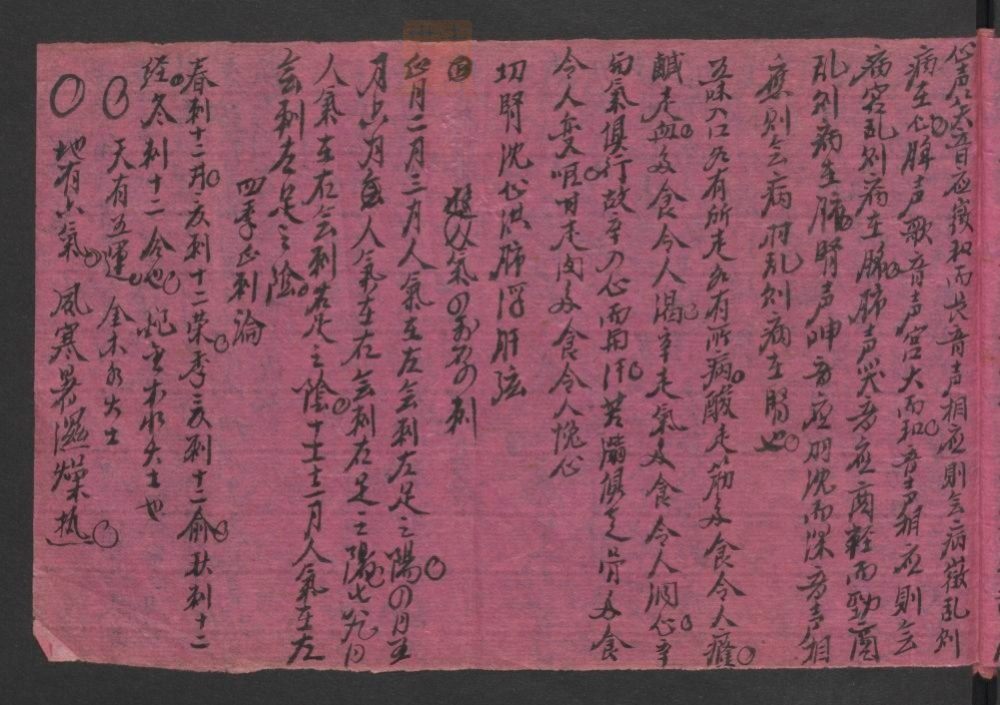 心声笑音应徵和而長音声相应則无病徵乱則
病在心脾声歌音声宮大而和音声相应則无
病宮乱則病在脾肺声哭音应商輕而勁商
乱則病在肺腎声呻音应羽沈而深音声相
应則无病羽乱則病在腸也
五味入口各有所走各有所病酸走筋多食令人癃
鹹走血多食令人渴辛走氣多食令人洞心辛
与氣俱行故辛入心而用汗苦 俱走骨多食
令人变呕甘走肉多食令人悗心
切腎沈心洪肺浮肝弦
避人氣の 刺
正月二月三月人氣在左无刺左足之陽の月五
月六月 人氣在右无刺右足之陽七八九月
人氣在右无刺右足之陰十十一十二月人氣在左
无刺左足之陰
四季正刺論
春刺十二井夏刺十二荣季夏刺十二俞秋刺十二
经冬刺十二合也 金木水火土也
天有五運 金木水火土
地有六氣 風寒暑濕燥热